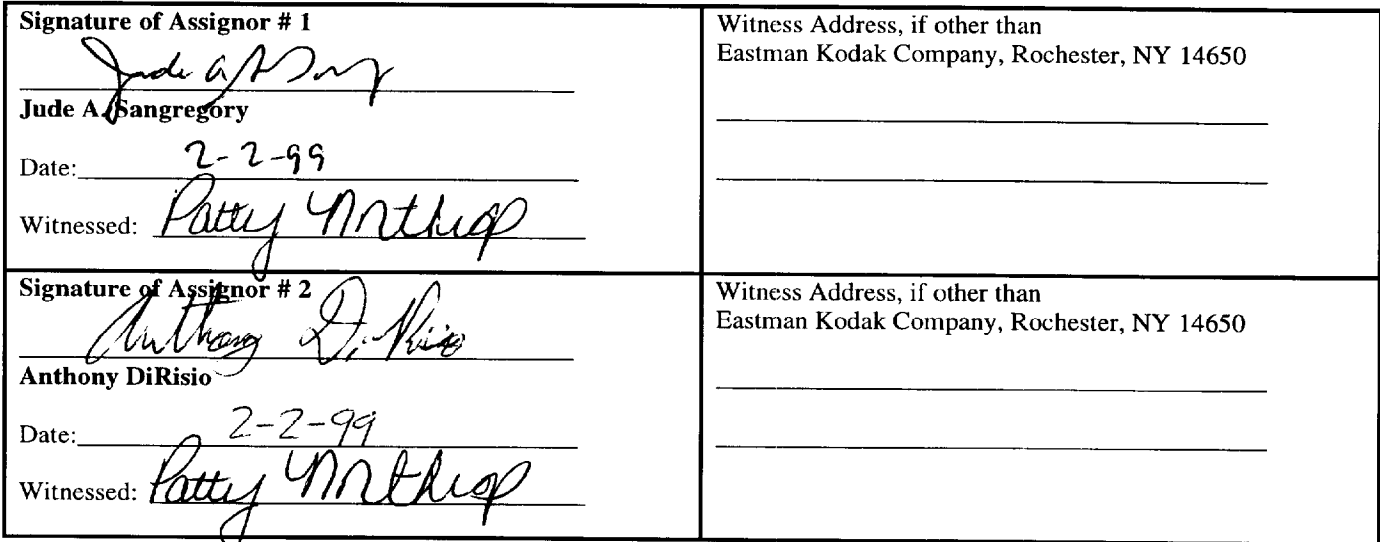 Signature of Assignor # 1
Jude A. Sangregory
Date: 2-2-99
Witnessed: Patty Northrop
Witness Address, if other than
Eastman Kodak Company, Rochester, NY 14650
Signature of Assignor # 2
Anthony DiRisio
Anthony DiRisio
Date: 2-2-99
Witnessed: Patty Northrop
Witness Address, if other than
Eastman Kodak Company, Rochester, NY 14650